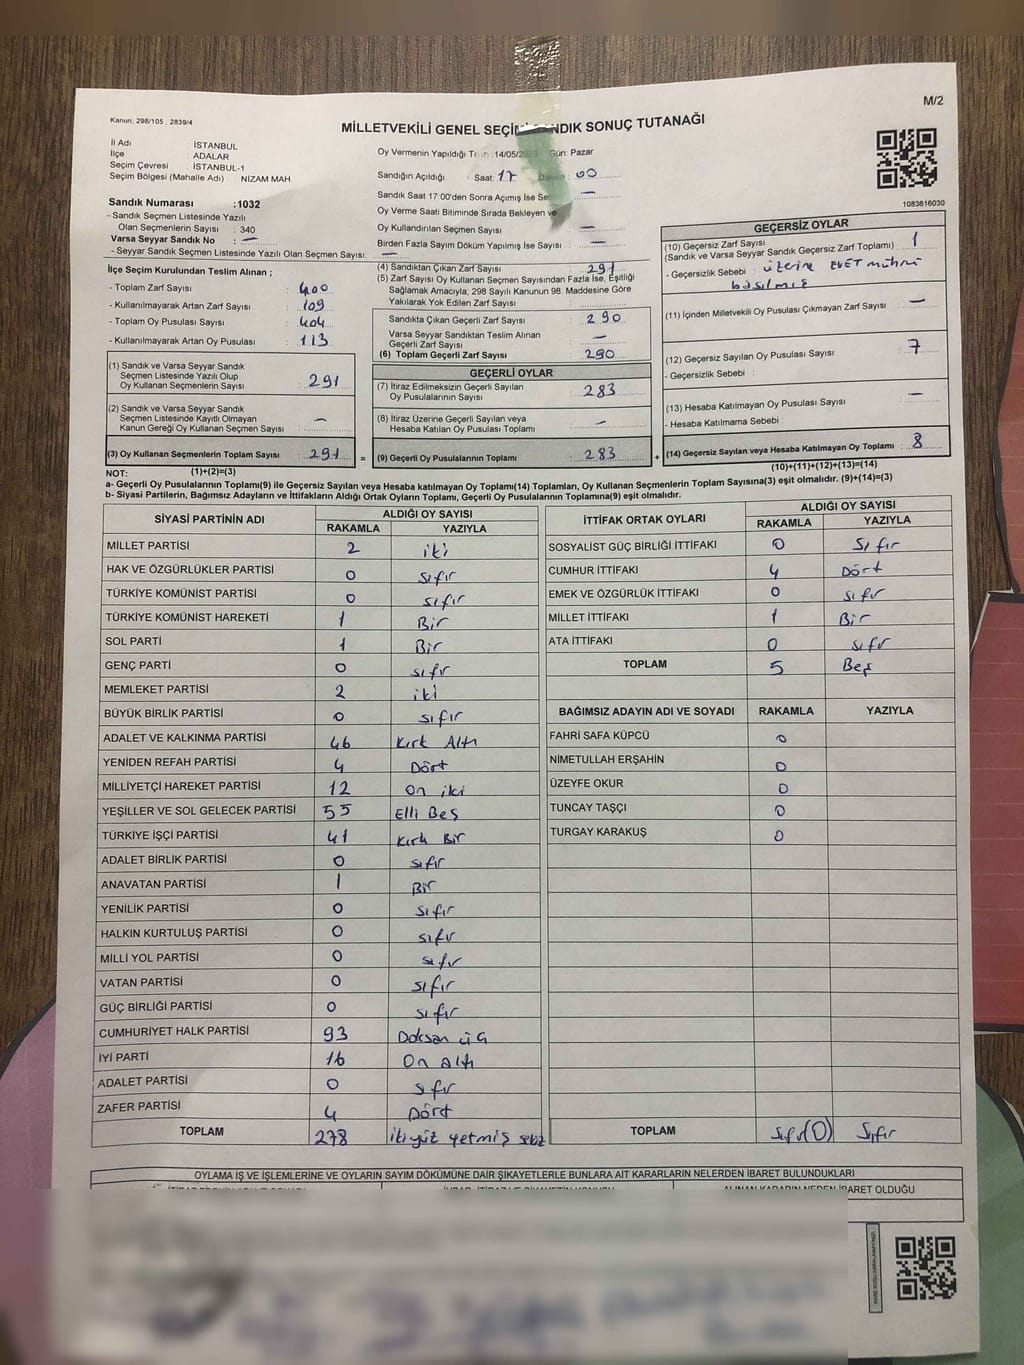 M/2
Kanun, 298/105 , 2839/4
MİLLETVEKİLİ GENEL SEÇİM SANDIK SONUÇ TUTANAĞI
İl Adı : İSTANBUL
İlçe : ADALAR
Seçim Çevresi : İSTANBUL-1
Seçim Bölgesi (Mahalle Adı) : NİZAM MAH
Sandık Numarası :1032
- Sandık Seçmen Listesinde Yazılı
Olan Seçmenlerin Sayısı : 340
Varsa Seyyar Sandık No : —
- Seyyar Sandık Seçmen Listesinde Yazılı Olan Seçmen Sayısı: —
Oy Vermenin Yapıldığı :14/05/ Gün: Pazar
Sandığın Açıldığı Saat: 17 : 00
Sandık Saat 17:00'den Sonra Açmış İse —
Oy Verme Saati Bitiminde Sırada Bekleyen ve
Oy Kullandırılan Seçmen Sayısı : —
Birden Fazla Sayım Döküm Yapılmış İse Sayısı : —
1083616030
İlçe Seçim Kurulundan Teslim Alınan ;
- Toplam Zarf Sayısı : 400
- Kullanılmayarak Artan Zarf Sayısı : 109
- Toplam Oy Pusulası Sayısı : 404
- Kullanılmayarak Artan Oy Pusulası : 113
(1) Sandık ve Varsa Seyyar Sandık
Seçmen Listesinde Yazılı Olup
Oy Kullanan Seçmenlerin Sayısı : 291
(2) Sandık ve Varsa Seyyar Sandık
Seçmen Listesinde Kayıtlı Olmayan
Kanun Gereği Oy Kullanan Seçmen Sayısı : —
(3) Oy Kullanan Seçmenlerin Toplam Sayısı : 291
(4) Sandıktan Çıkan Zarf Sayısı : 291
(5) Zarf Sayısı Oy Kullanan Seçmen Sayısından Fazla İse, Eşitliği
Sağlamak Amacıyla, 298 Sayılı Kanunun 98. Maddesine Göre
Yakılarak Yok Edilen Zarf Sayısı :
Sandıkta Çıkan Geçerli Zarf Sayısı : 290
Varsa Seyyar Sandıktan Teslim Alınan
Geçerli Zarf Sayısı : —
(6) Toplam Geçerli Zarf Sayısı : 290
GEÇERLİ OYLAR
(7) İtiraz Edilmeksizin Geçerli Sayılan
Oy Pusulalarının Sayısı : 283
(8) İtiraz Üzerine Geçerli Sayılan veya
Hesaba Katılan Oy Pusulası Toplamı : —
= (9) Geçerli Oy Pusulalarının Toplamı : 283
GEÇERSİZ OYLAR
(10) Geçersiz Zarf Sayısı
(Sandık ve Varsa Seyyar Sandık Geçersiz Zarf Toplamı) : 1
- Geçersizlik Sebebi : üzerine EVET mührü
basılmış
(11) İçinden Milletvekili Oy Pusulası Çıkmayan Zarf Sayısı : —
(12) Geçersiz Sayılan Oy Pusulası Sayısı : 7
- Geçersizlik Sebebi :
(13) Hesaba Katılmayan Oy Pusulası Sayısı : —
- Hesaba Katılmama Sebebi :
+ (14) Geçersiz Sayılan veya Hesaba Katılmayan Oy Toplamı : 8
NOT: (1)+(2)=(3)
(10)+(11)+(12)+(13)=(14)
a- Geçerli Oy Pusulalarının Toplamı(9) ile Geçersiz Sayılan veya Hesaba katılmayan Oy Toplamı(14) Toplamları, Oy Kullanan Seçmenlerin Toplam Sayısına(3) eşit olmalıdır. (9)+(14)=(3)
b- Siyasi Partilerin, Bağımsız Adayların ve İttifakların Aldığı Ortak Oyların Toplamı, Geçerli Oy Pusulalarının Toplamına(9) eşit olmalıdır.
SİYASİ PARTİNİN ADI ALDIĞI OY SAYISI
RAKAMLA YAZIYLA
MİLLET PARTİSİ 2 iki
HAK VE ÖZGÜRLÜKLER PARTİSİ 0 sıfır
TÜRKİYE KOMÜNİST PARTİSİ 0 sıfır
TÜRKİYE KOMÜNİST HAREKETİ 1 Bir
SOL PARTİ 1 Bir
GENÇ PARTİ 0 sıfır
MEMLEKET PARTİSİ 2 iki
BÜYÜK BİRLİK PARTİSİ 0 sıfır
ADALET VE KALKINMA PARTİSİ 46 Kırk Altı
YENİDEN REFAH PARTİSİ 4 Dört
MİLLİYETÇİ HAREKET PARTİSİ 12 on iki
YEŞİLLER VE SOL GELECEK PARTİSİ 55 Elli Beş
TÜRKİYE İŞÇİ PARTİSİ 41 Kırk Bir
ADALET BİRLİK PARTİSİ 0 sıfır
ANAVATAN PARTİSİ 1 Bir
YENİLİK PARTİSİ 0 sıfır
HALKIN KURTULUŞ PARTİSİ 0 sıfır
MİLLİ YOL PARTİSİ 0 sıfır
VATAN PARTİSİ 0 sıfır
GÜÇ BİRLİĞİ PARTİSİ 0 sıfır
CUMHURİYET HALK PARTİSİ 93 Doksan üç
İYİ PARTİ 16 On altı
ADALET PARTİSİ 0 sıfır
ZAFER PARTİSİ 4 Dört
TOPLAM 278 ikiyüz yetmiş sekiz
İTTİFAK ORTAK OYLARI ALDIĞI OY SAYISI
RAKAMLA YAZIYLA
SOSYALİST GÜÇ BİRLİĞİ İTTİFAKI 0 Sıfır
CUMHUR İTTİFAKI 4 Dört
EMEK VE ÖZGÜRLÜK İTTİFAKI 0 sıfır
MİLLET İTTİFAKI 1 Bir
ATA İTTİFAKI 0 sıfır
TOPLAM 5 Beş
BAĞIMSIZ ADAYIN ADI VE SOYADI RAKAMLA YAZIYLA
FAHRİ SAFA KÜPCÜ 0
NİMETULLAH ERŞAHİN 0
ÜZEYFE OKUR 0
TUNCAY TAŞÇI 0
TURGAY KARAKUŞ 0
TOPLAM Sıfır(0) Sıfır
OYLAMA İŞ VE İŞLEMLERİNE VE OYLARIN SAYIM DÖKÜMÜNE DAİR ŞİKAYETLERLE BUNLARA AİT KARARLARIN NELERDEN İBARET BULUNDUKLARI
ALINAN KARARIN NEDEN İBARET OLDUĞU